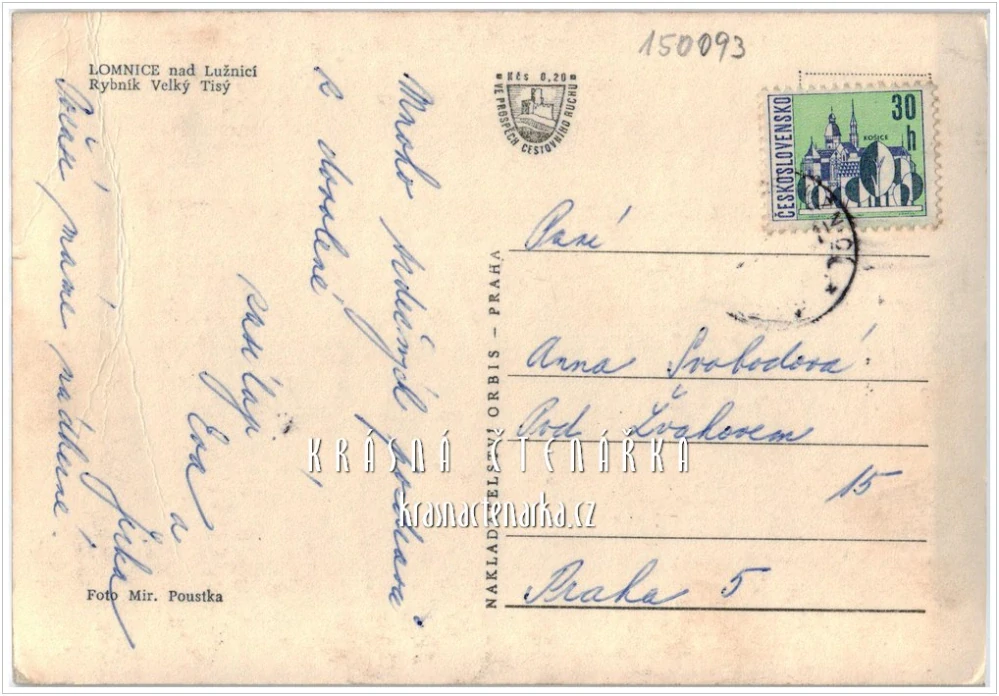 150093
LOMNICE nad Lužnicí
Rybník Velký Tisý
Kčs 0,20
VE PROSPĚCH CESTOVNÍHO RUCHU
ČESKOSLOVENSKO
30
h
KOŠICE
Mnoho srdečných pozdravů
z dovolené
zasílají
Eva a
Jirka
Počasí máme nádherné!
Paní
Anna Svobodová
Pod Žvahovem
15
Praha 5
NAKLADATELSTVÍ ORBIS – PRAHA
KRÁSNÁ ČTENÁŘKA
krasnactenarka.cz
Foto Mir. Poustka